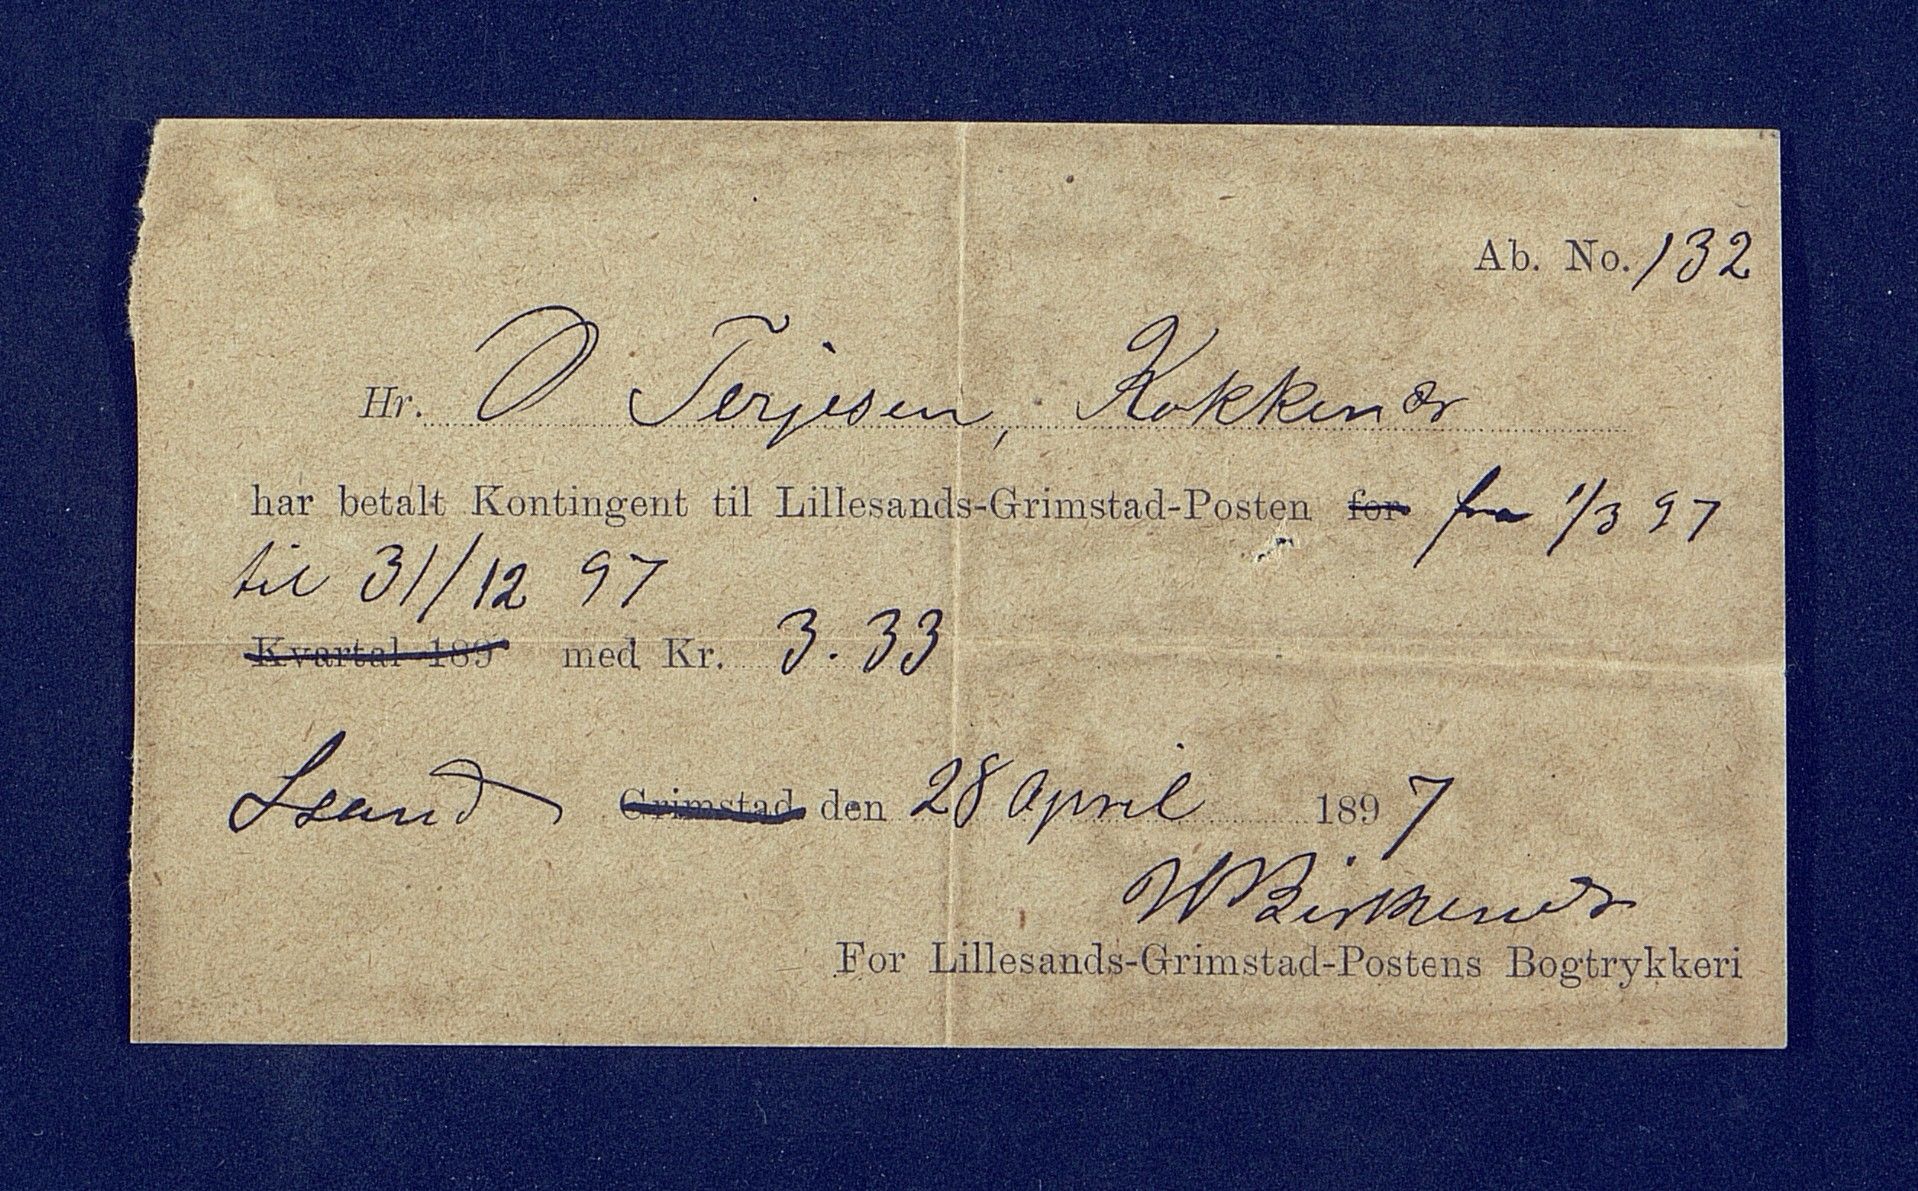 Ab. No. 132
Hr. O Terjesen, Kokkenæs
har betalt Kontingent til Lillesands-Grimstad-Posten for fra 1/3 97
til 31/12 97
Kvartal 189 med Kr. 3.33
Lsand Grimstad den 28 April 1897
For Lillesands-Grimstad-Postens Bogtrykkeri